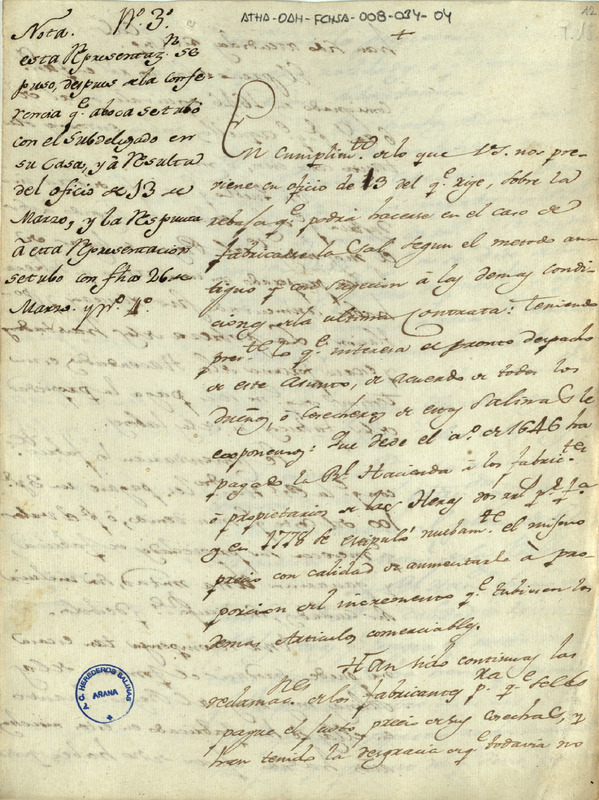 ATHA-DAH-FCHSA-008-034-04
Nº. 3º
Nota.
esta Representaz.n se
puso, despues de la confe-
rencia q.e aboca se tubo
con el Subdelegado en
su Casa, y à Resulta
del oficio de 13 de
Marzo, y la Respuesta
à esta Representacion
se tubo con fha 26 de
Marzo. y nº. 4º.
En cumplim.to de lo que V.S. nos pre-
viene en oficio de 13 del q.e rige, sobre la
rebaja q.e podrá hacerse en el caso de
fabricarse la Sal segun el metodo an-
tiguo y con sugecion à las demas condi-
ciones de la ultima Contrata: Teniendo
pres.te lo q.e interesa el pronto despacho
de este Asunto, de acuerdo de todos los
dueños ò Cosecheros de estas Salinas le
exponemos: Que desde el a.o de 1646 ha
pagado la R.l Hacienda à los fabric.tes
ò propietarios de las Heras dos r.s v.n p.r f.a
y en 1778 se estipuló nuebam.te el mismo
precio con calidad de aumentarle à pro-
porcion del incremento q.e tubiesen los
demas Articulos comerciables.
Han sido continuas las
reclamac.nes de los fabricantes p.ra q.e se les
pague el justo precio de sus cosechas, y
han tenido la desgracia de q.e todavia no
C. HEREDEROS SALINAS
ARANA